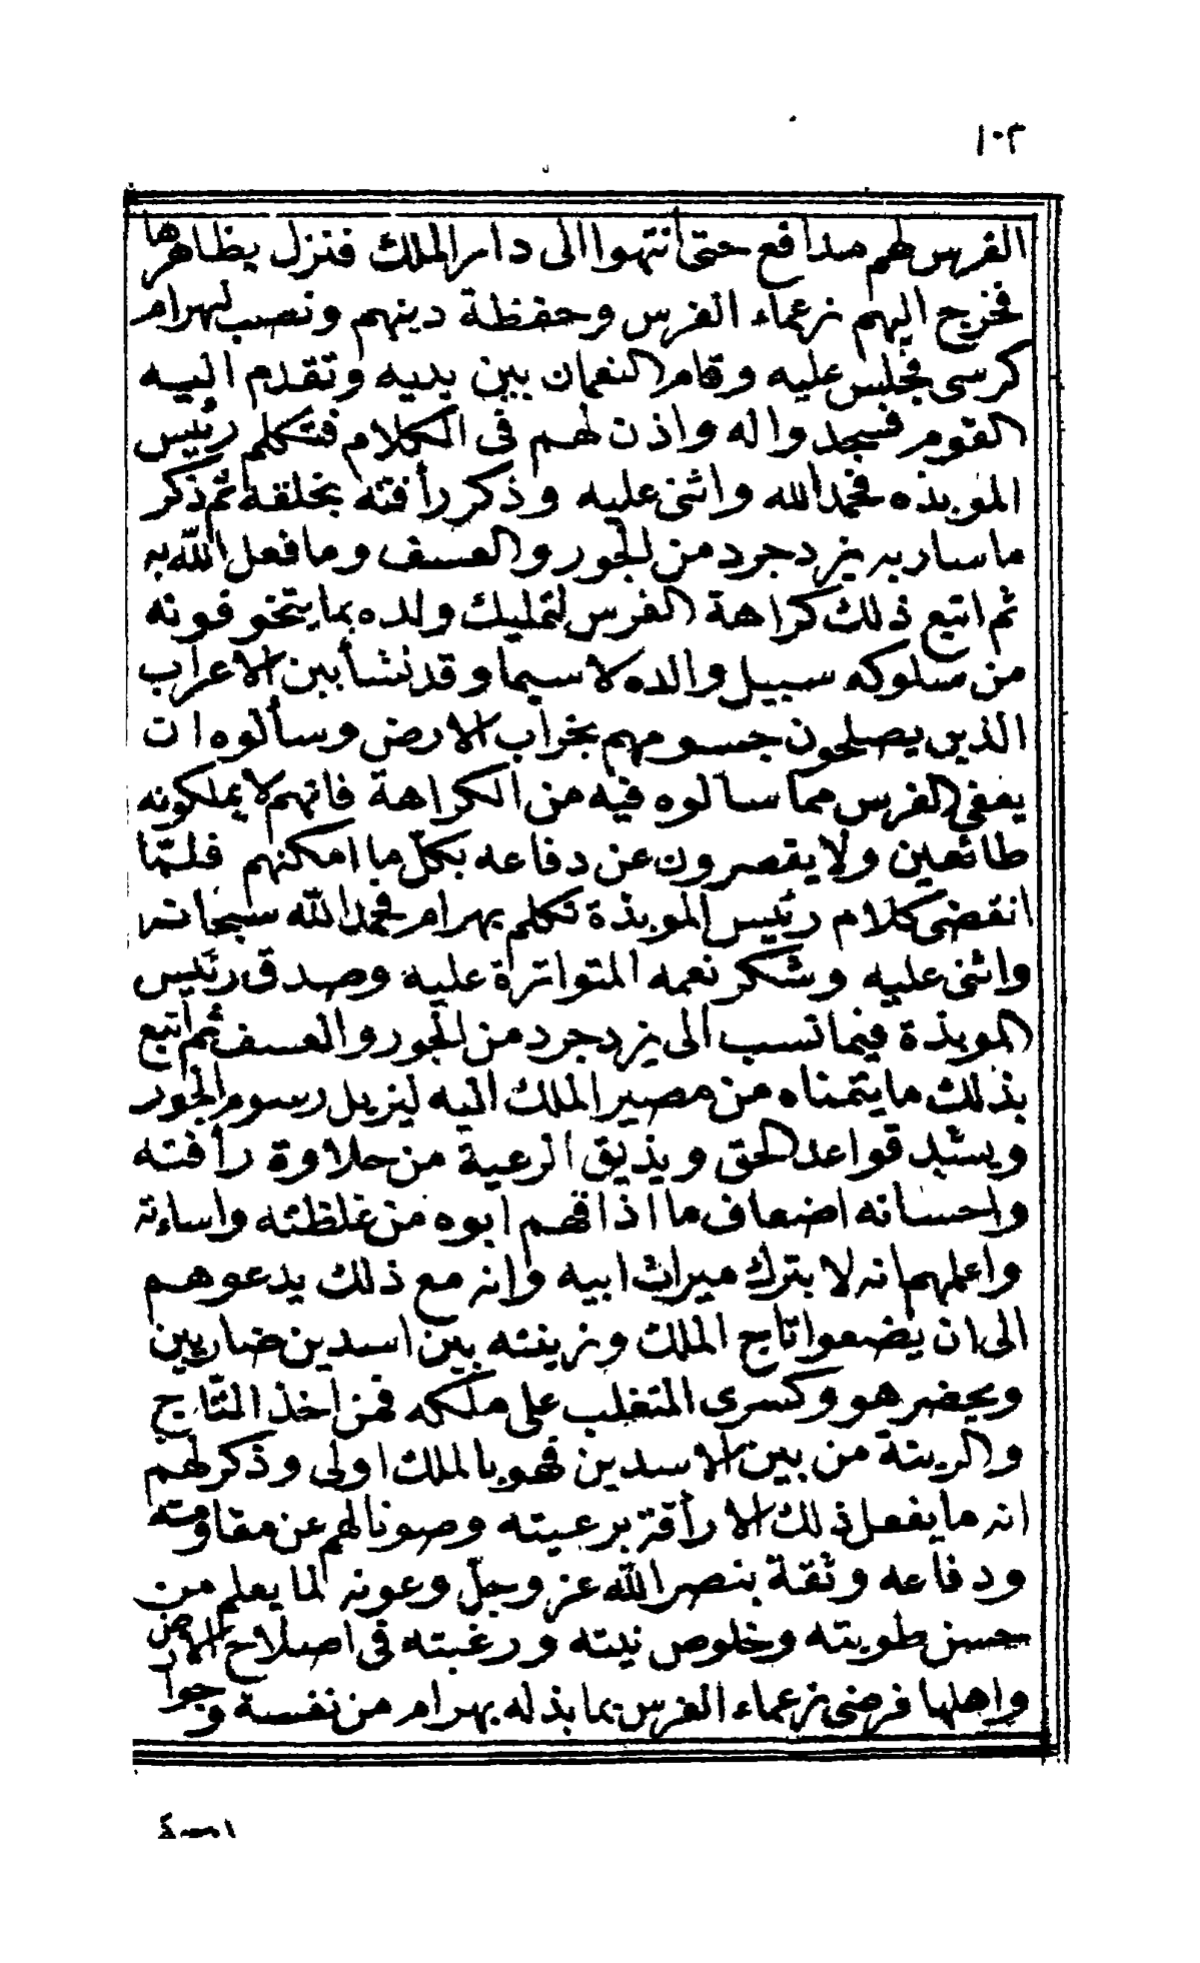 ١٠٣
الفرس لهم مدافع حتى انتهوا الى دار الملك فنزل بظاهرها
فخرج اليهم زعماء الفرس وحفظة دينهم ونصب لبهرام
كرسى فجلس عليه وقام النعمان بين يديه وتقدم اليه
القوم فسجد واله واذن لهم فى الكلام فتكلم رئيس
الموبذه فحمد الله واثنى عليه وذكر رأفته بخلقه ثم ذكر
ما سار به يزدجرد من الجور والعسف وما فعل الله به
ثم اتبع ذلك كراهة الفرس لتمليك ولده بما يتخوفونه
من سلوكه سبيل والده لا سيما وقد نشأ بين الاعراب
الذين يصلحون جسومهم بخراب الارض وسألوه ان
يعفى الفرس مما سألوه فيه من الكراهة فانهم لا يملكونه
طائعين ولا يقصرون عن دفاعه بكلّ ما امكنهم فلمّا
انقضى كلام رئيس الموبذة تكلم بهرام فحمد الله سبحانه
واثنى عليه وشكر نعمه المتواترة عليه وصدق رئيس
الموبذة فيما نسب الى يزدجرد من الجور والعسف ثم اتبع
بذلك ما يتمناه من مصير الملك اليه ليزيل رسوم الجور
ويشيد قواعد الحق ويذيق الرعية من حلاوة رأفته
واحسانه اضعاف ما اذاقهم ابوه من غلظته واساءته
واعلمهم انه لا يترك ميراث ابيه وانه مع ذلك يدعوهم
الى ان يضعوا تاج الملك وزينته بين اسدين ضاريين
ويحضر هو وكسرى المتغلب على ملكه فمن اخذ التّاج
والزينة من بين الاسدين فهو بالملك اولى وذكر لهم
انه ما يفعل ذلك الا رأفة برعيته وصونا لهم عن مقاومته
ودفاعه وثقة بنصر الله عز وجلّ وعونه لما يعلم من
حسن طويته وخلوص نيته ورغبته فى اصلاح الارض
واهلها فرضى زعماء الفرس بما بذله بهرام من نفسه و جوا